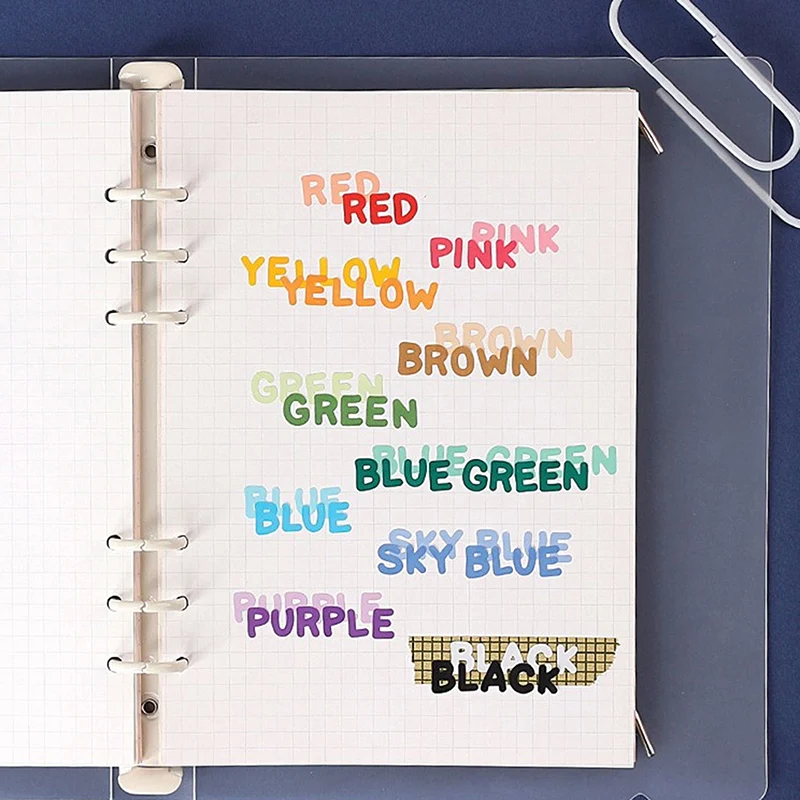 RED
RED
PINK
PINK
YELLOW
YELLOW
BROWN
BROWN
GREEN
GREEN
BLUE GREEN
BLUE GREEN
BLUE
BLUE
SKY BLUE
SKY BLUE
PURPLE
PURPLE
BLACK
BLACK